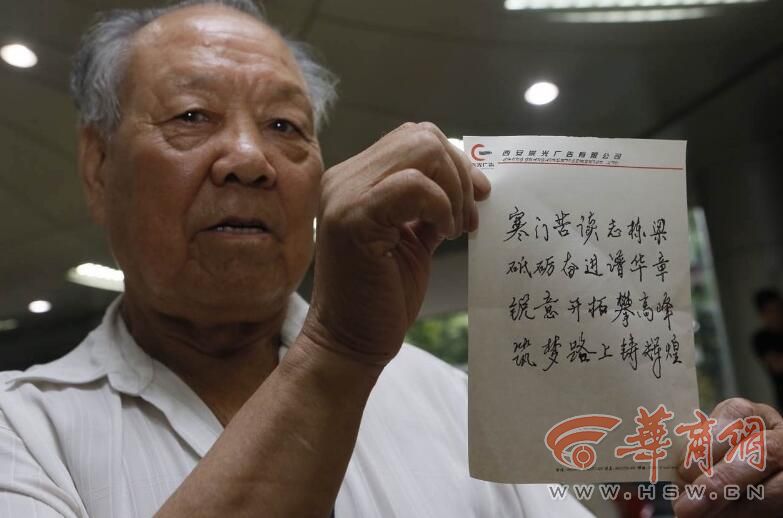 西安崇光广告有限公司
寒门苦读志栋梁
砥砺奋进谱华章
锐意开拓攀高峰
筑梦路上铸辉煌
华商网
WWW.HSW.CN